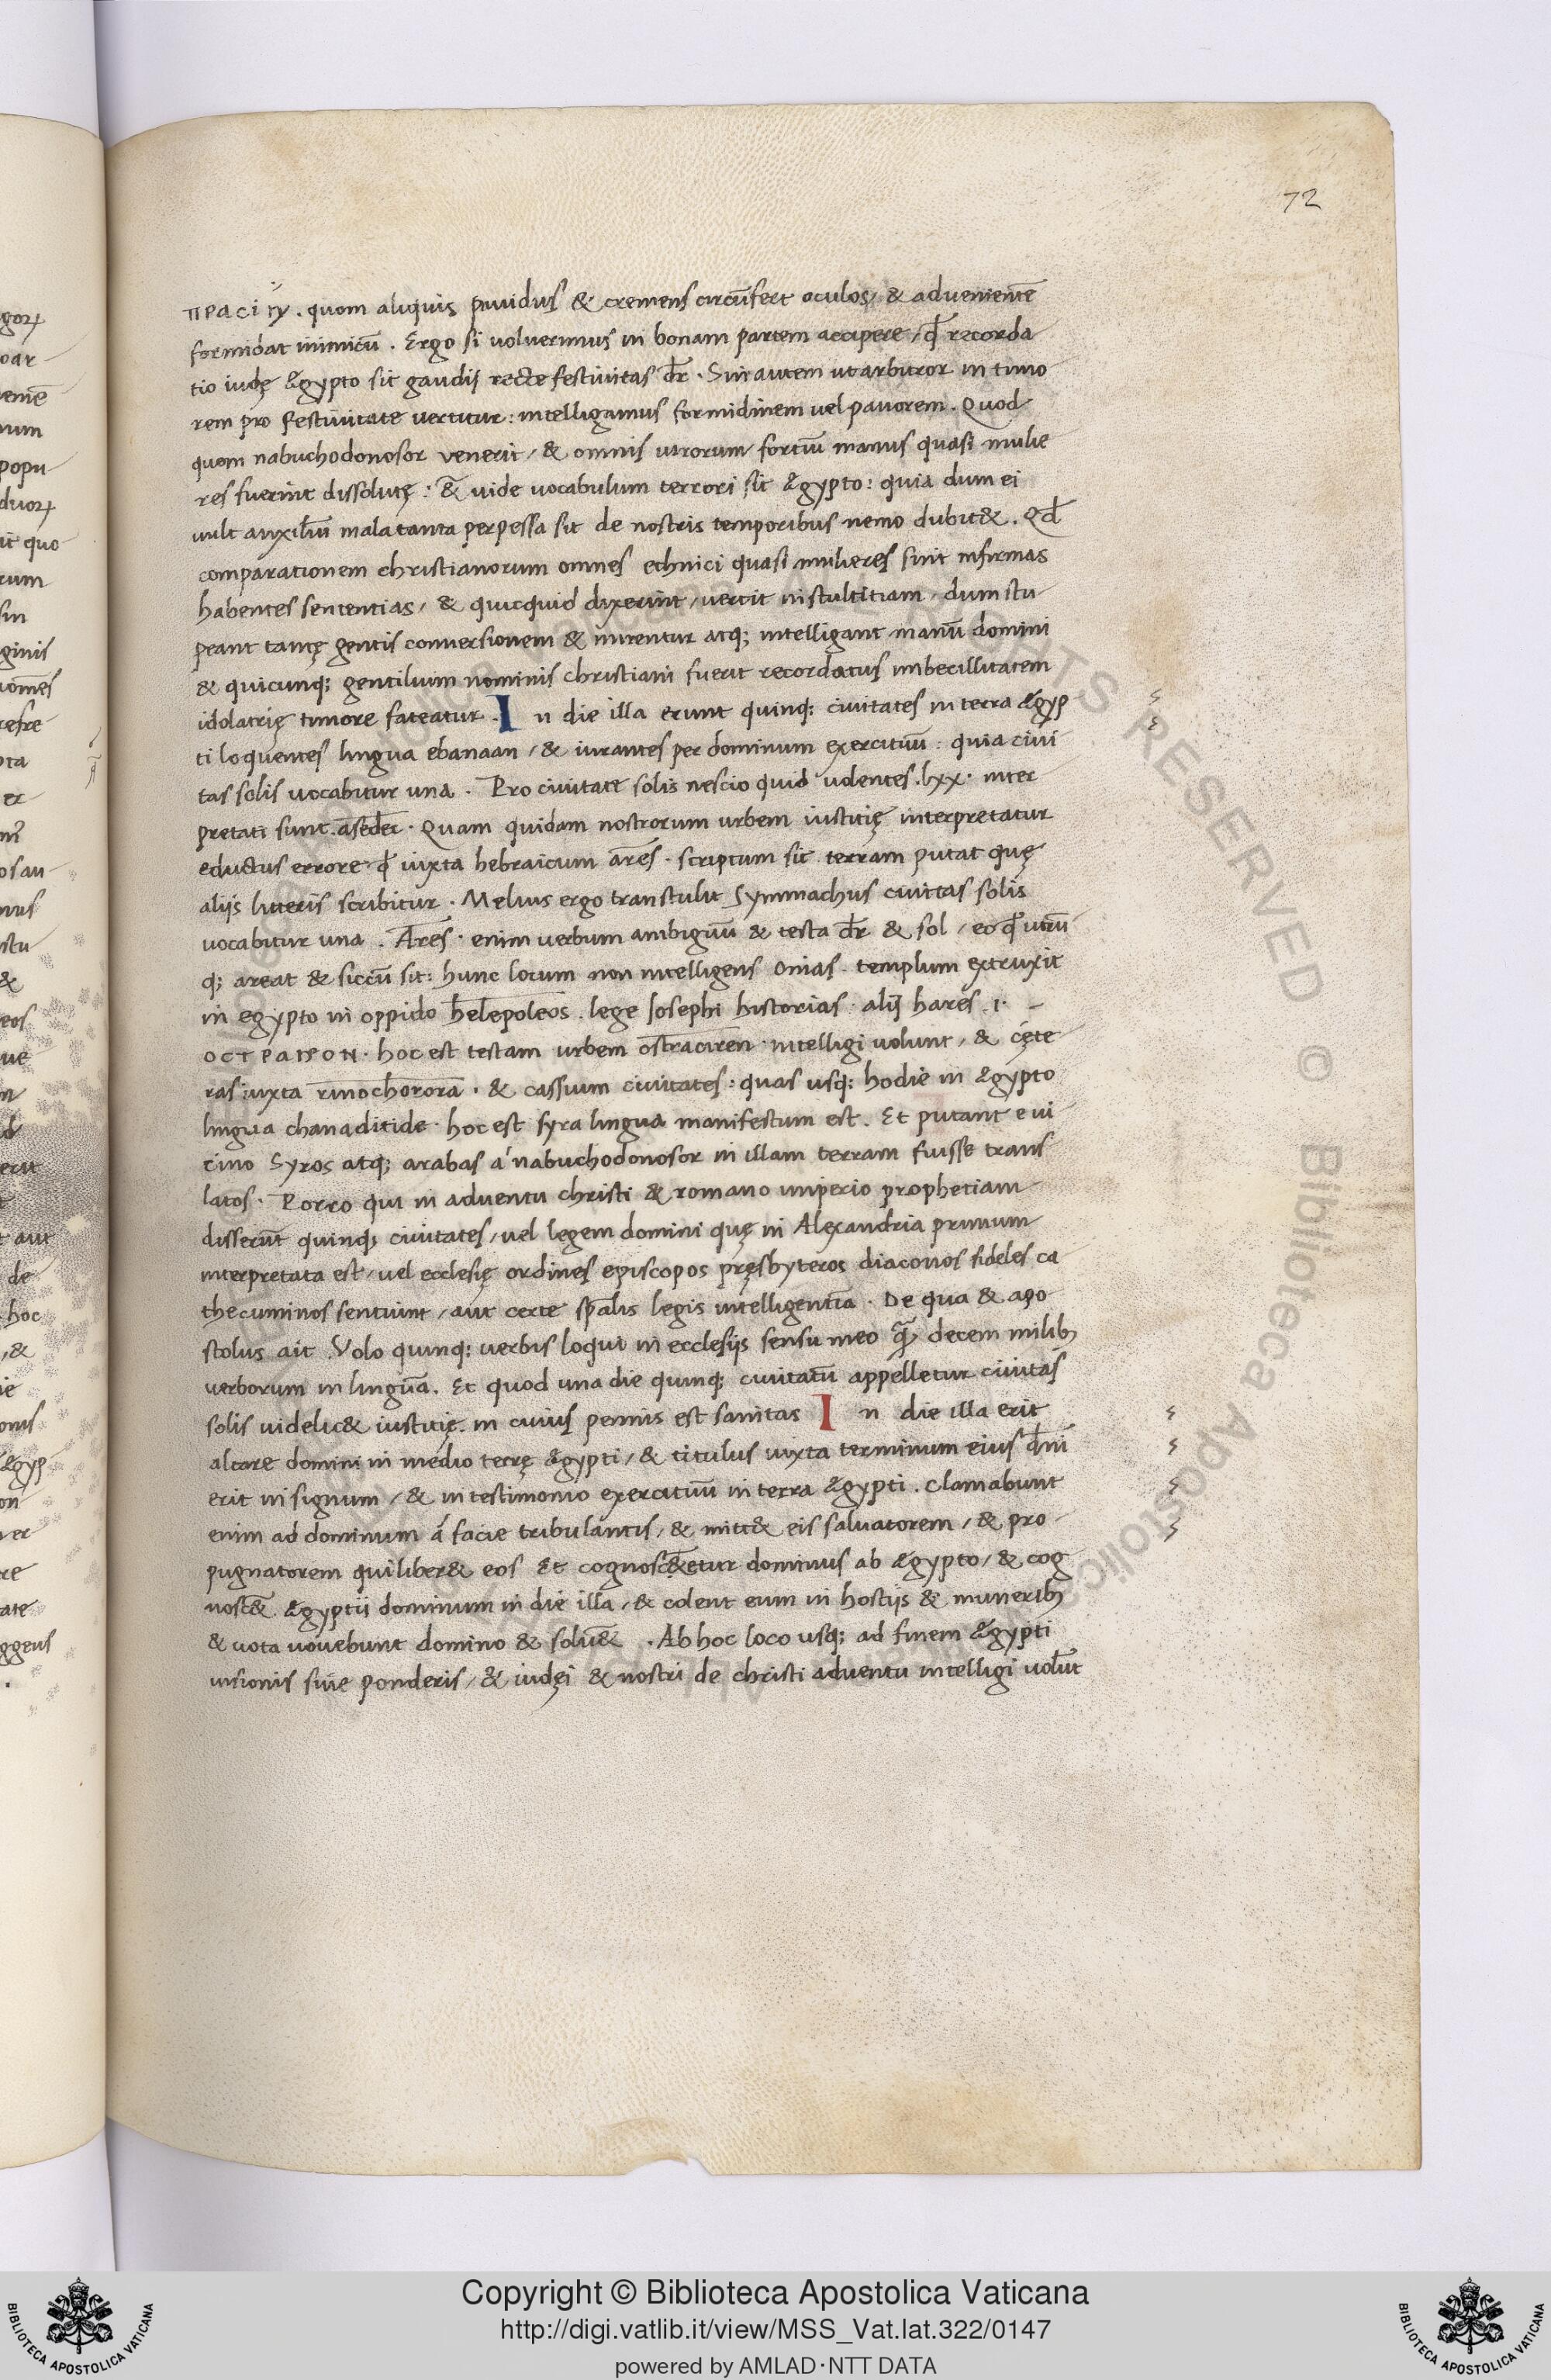 72
πραcinγ . quom aliquis pauidus & tremens circūfert oculos / & aduenientē
formidat inimicū . Ergo si voluerimus in bonam partem accipere / qđ recorda
tio iudę Ægypto sit gaudij recte festiuitas dr̄ . Sin autem ut arbitror in timo
rem pro festiuitate vertitur : intelligamus formidinem uel pauorem . Quod
quom nabuchodonosor venerit / & omnis uirorum fortiū manus quasi mulie
res fuerint dissolutę : & uide uocabulum terrori sit Ægypto : quia dum ei
uult auxiliū mala tanta perpessa sit de nostris temporibus nemo dubit& . Qđ
comparationem christianorum omnes ethnici quasi mulieres sint infirmas
habentes sententias / & quicquid dixerint / vertit in stultitiam / dum stu
peant tantę gentis conuersionem & mirentur atq; intelligant manū domini
& quicunq; gentilium nominis christiani fuerit recordatus imbecillitatem
idolatrię timore fateatur . I n die illa erunt quinq; ciuitates in terra Ægyp
ti loquentes lingua ebanaan / & iurantes per dominum exercituū : quia ciui
tas solis uocabitur una . Pro ciuitate solis nescio quid uolentes . lxx . inter
pretati sunt . asedec . Quam quidam nostrorum urbem iustitię interpretatur
eductus errore qđ iuxta hebraicum ares . scriptum sit terram putat quę
alijs litteris scribitur . Melius ergo transtulit Symmachus ciuitas solis
uocabitur una . Ares . enim uerbum ambiguū & testa dr̄ & sol / eo qđ utrū
q; areat & siccū sit : hunc locum non intelligens onias . templum extruxit
in egypto in oppido helepoleos . lege Josephi historias . alij hares . i . –
οcτραικον . hoc est testam urbem ostraciren . intelligi uolunt / & cęte
ras iuxta rinochorora . & cassium ciuitates : quas usq; hodie in Ægypto
lingua chanaditide . hoc est syra lingua manifestum est . Et putant e ui
cino Syros atq; arabas á nabuchodonosor in illam terram fuisse trans
latos . Porro qui in aduentu christi & romano imperio prophetiam
disserūt quinq; ciuitates / uel legem domini quę in Alexandria primum
interpretata est / uel ecclesię ordines episcopos pręsbyteros diaconos fideles ca
thecuminos sentiunt / aut certe sp̄alis legis intelligentia . De qua & apo
stolus ait . Volo quinq; uerbis loqui in ecclesijs sensu meo q̄ȝ decem milibȝ
uerborum in linguā . Et quod una die quinq; ciuitatū appelletur ciuitas
solis uidelic& iustitię . in cuius pennis est sanitas I n die illa erit
altare domini in medio terrę Ægypti / & titulus iuxta terminum eius dn̄i
erit in signum / & in testimonio exercituū in terra Ægypti . Clamabunt
enim ad dominum á facie tribulantis / & mitt& eis saluatorem / & pro
pugnatorem qui liber& eos Et cognosc&etur dominus ab Ægypto / & cog
nosc& Ægyptii dominum in die illa / & colent eum in hostijs & muneribȝ
& uota uouebunt domino & solu& . Ab hoc loco usq; ad finem Ægypti
uisionis siue ponderis / & iudęi & nostri de christi aduentu intelligi uolūt
Copyright © Biblioteca Apostolica Vaticana
http://digi.vatlib.it/view/MSS_Vat.lat.322/0147
powered by AMLAD·NTT DATA